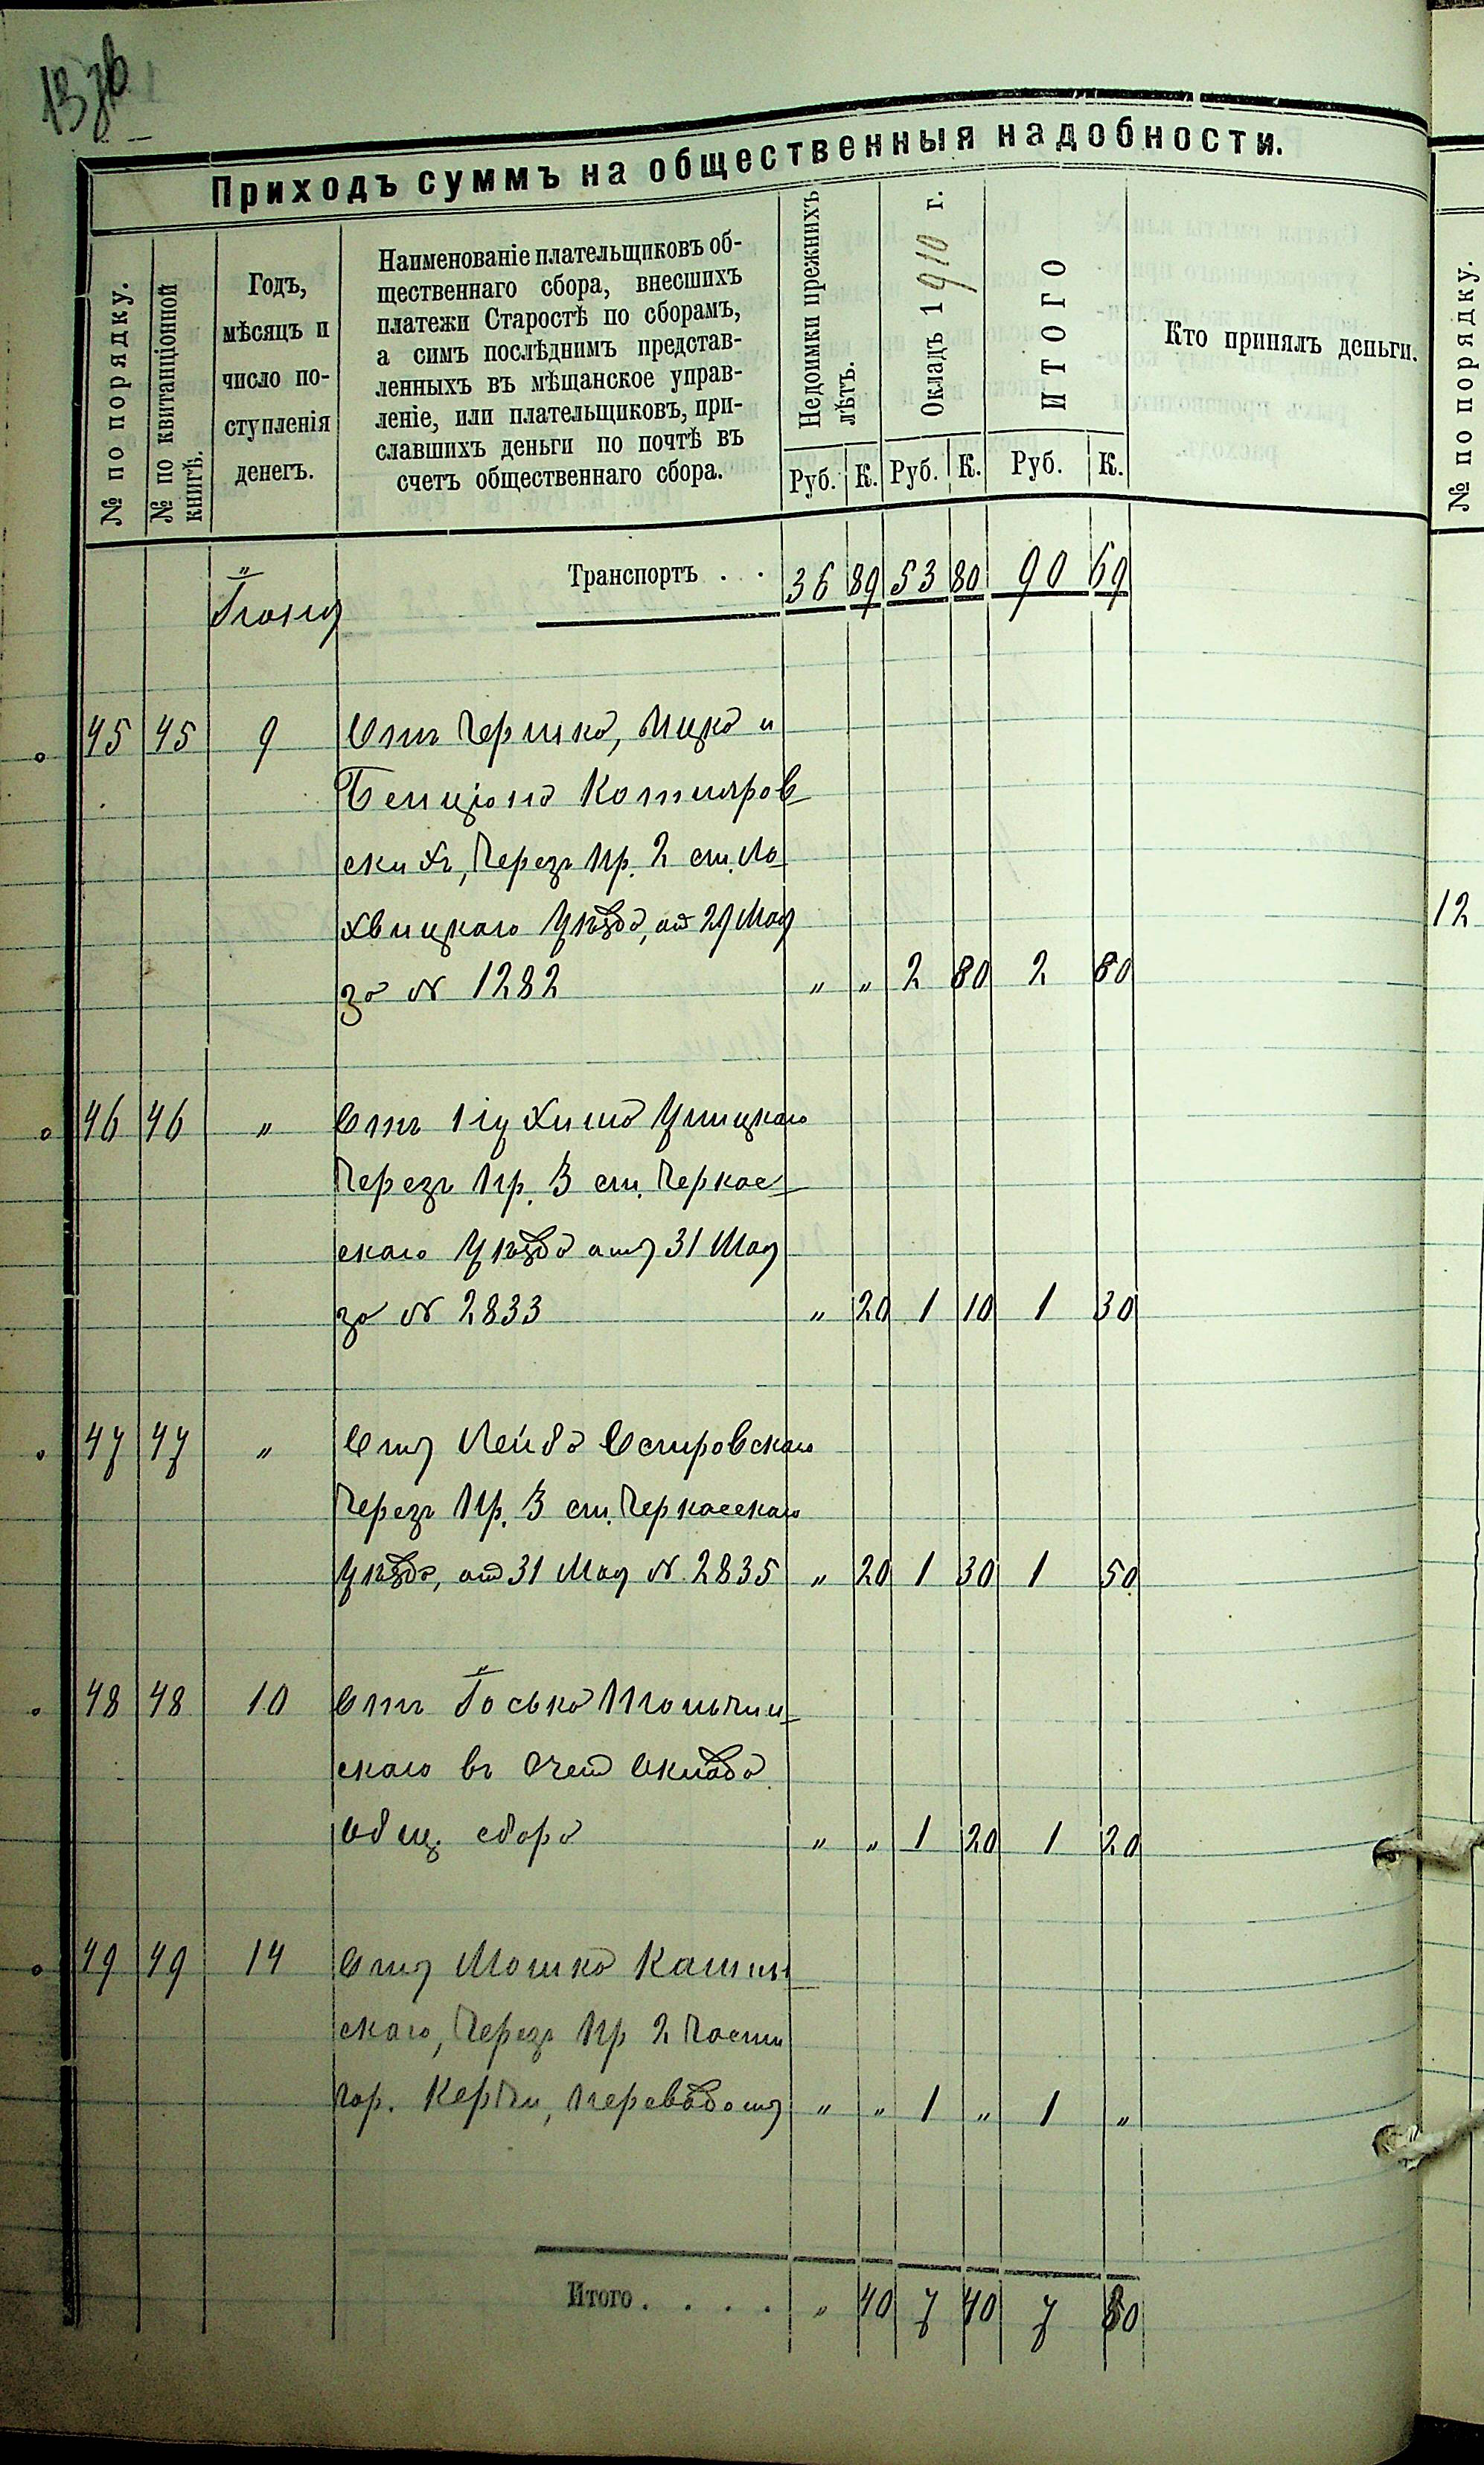 13 зв
Приходъ суммъ на общественныя надобности.
№ по порядку.
№ по квитанціонной
книгѣ.
Годъ,
мѣсяцъ и
число по-
ступленія
денегъ.
Наименованіе плательщиковъ об-
щественнаго сбора, внесшихъ
платежи Старостѣ по сборамъ,
а симъ послѣднимъ представ-
ленныхъ въ мѣщанское управ-
леніе, или плательщиковъ, при-
славшихъ деньги по почтѣ въ
счетъ общественнаго сбора.
Недоимки прежнихъ
лѣтъ.
Окладъ 1910 г.
ИТОГО
Кто принялъ деньги.
Руб. К. Руб. К. Руб. К.
Транспортъ . . 36 89 53 80 90 69
Іюня
45 45 9 Отъ Гершка, Ицка и
Бенціона Котляров
скихъ, Через Пр. 2 ст. Ло
хвицкаго Уѣзда, от 29 Мая
за № 1282 " " 2 80 2 80
46 46 " Отъ Уницкаго
Через Пр. 3 ст. Черкас
скаго Уѣзда отъ 31 Мая
за № 2833 " 20 1 10 1 30
47 47 " Отъ Лейба Островскаго
Черезъ Пр. 3 ст. Черкасскаго
Уѣзда, от 31 Мая № 2835 " 20 1 30 1 50
48 48 10 Отъ Іоська Тольчин
скаго въ Счет Оклада
Общ. сбора " " 1 20 1 20
49 49 14 Отъ Мошка Калин
скаго, Через Пр 2 Части
гор. Керчи, переводомъ " " 1 " 1 "
Итого . . . . " 40 7 40 7 80
№ по порядку.
12